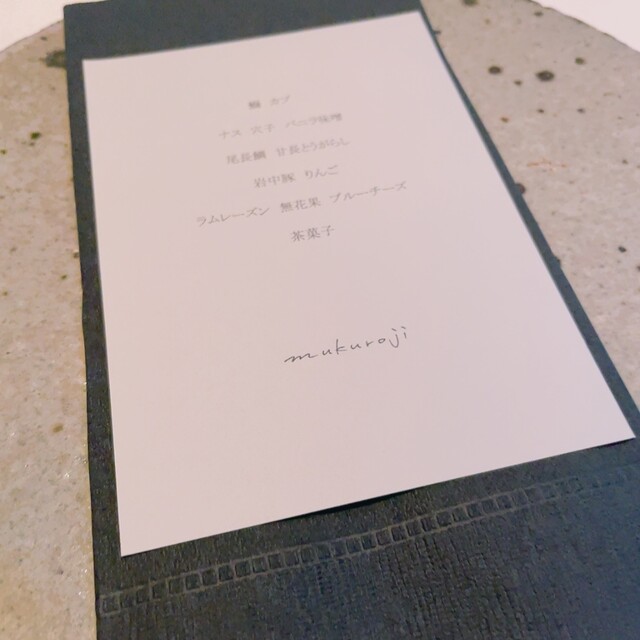 鯛 カブ
ナス 穴子 バニラ味噌
尾長鯛 甘長とうがらし
岩中豚 りんご
ラムレーズン 無花果 ブルーチーズ
茶菓子
mukuroji